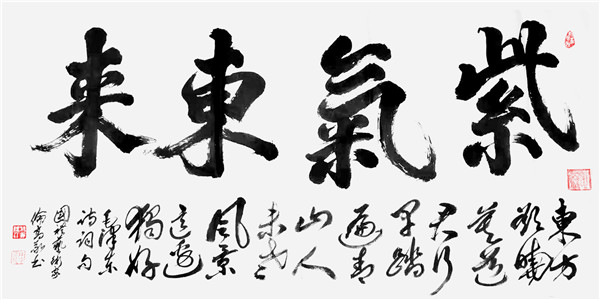 紫氣東来
東方
欲曉
莫道
君行
早踏
遍青
山人
未老
風景
這邊
獨好
毛澤東
詩詞句